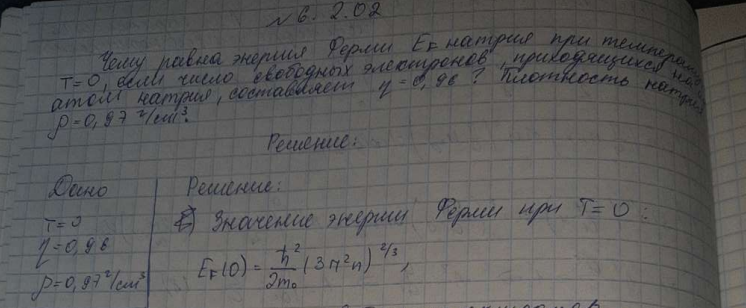 № 6. 2.02
Чему равна энергия Ферми E_F натрия при температуре
T=0, если число свободных электронов, приходящихся на
атом натрия, составляет η=0,96? Плотность натрия
ρ=0,97 г/см³.
Решение:
Дано
Решение:
T=0
Значение энергии Ферми при T=0:
η=0,96
E_F(0) = ħ²/2m₀ (3π²n)^(2/3),
ρ=0,97 г/см³